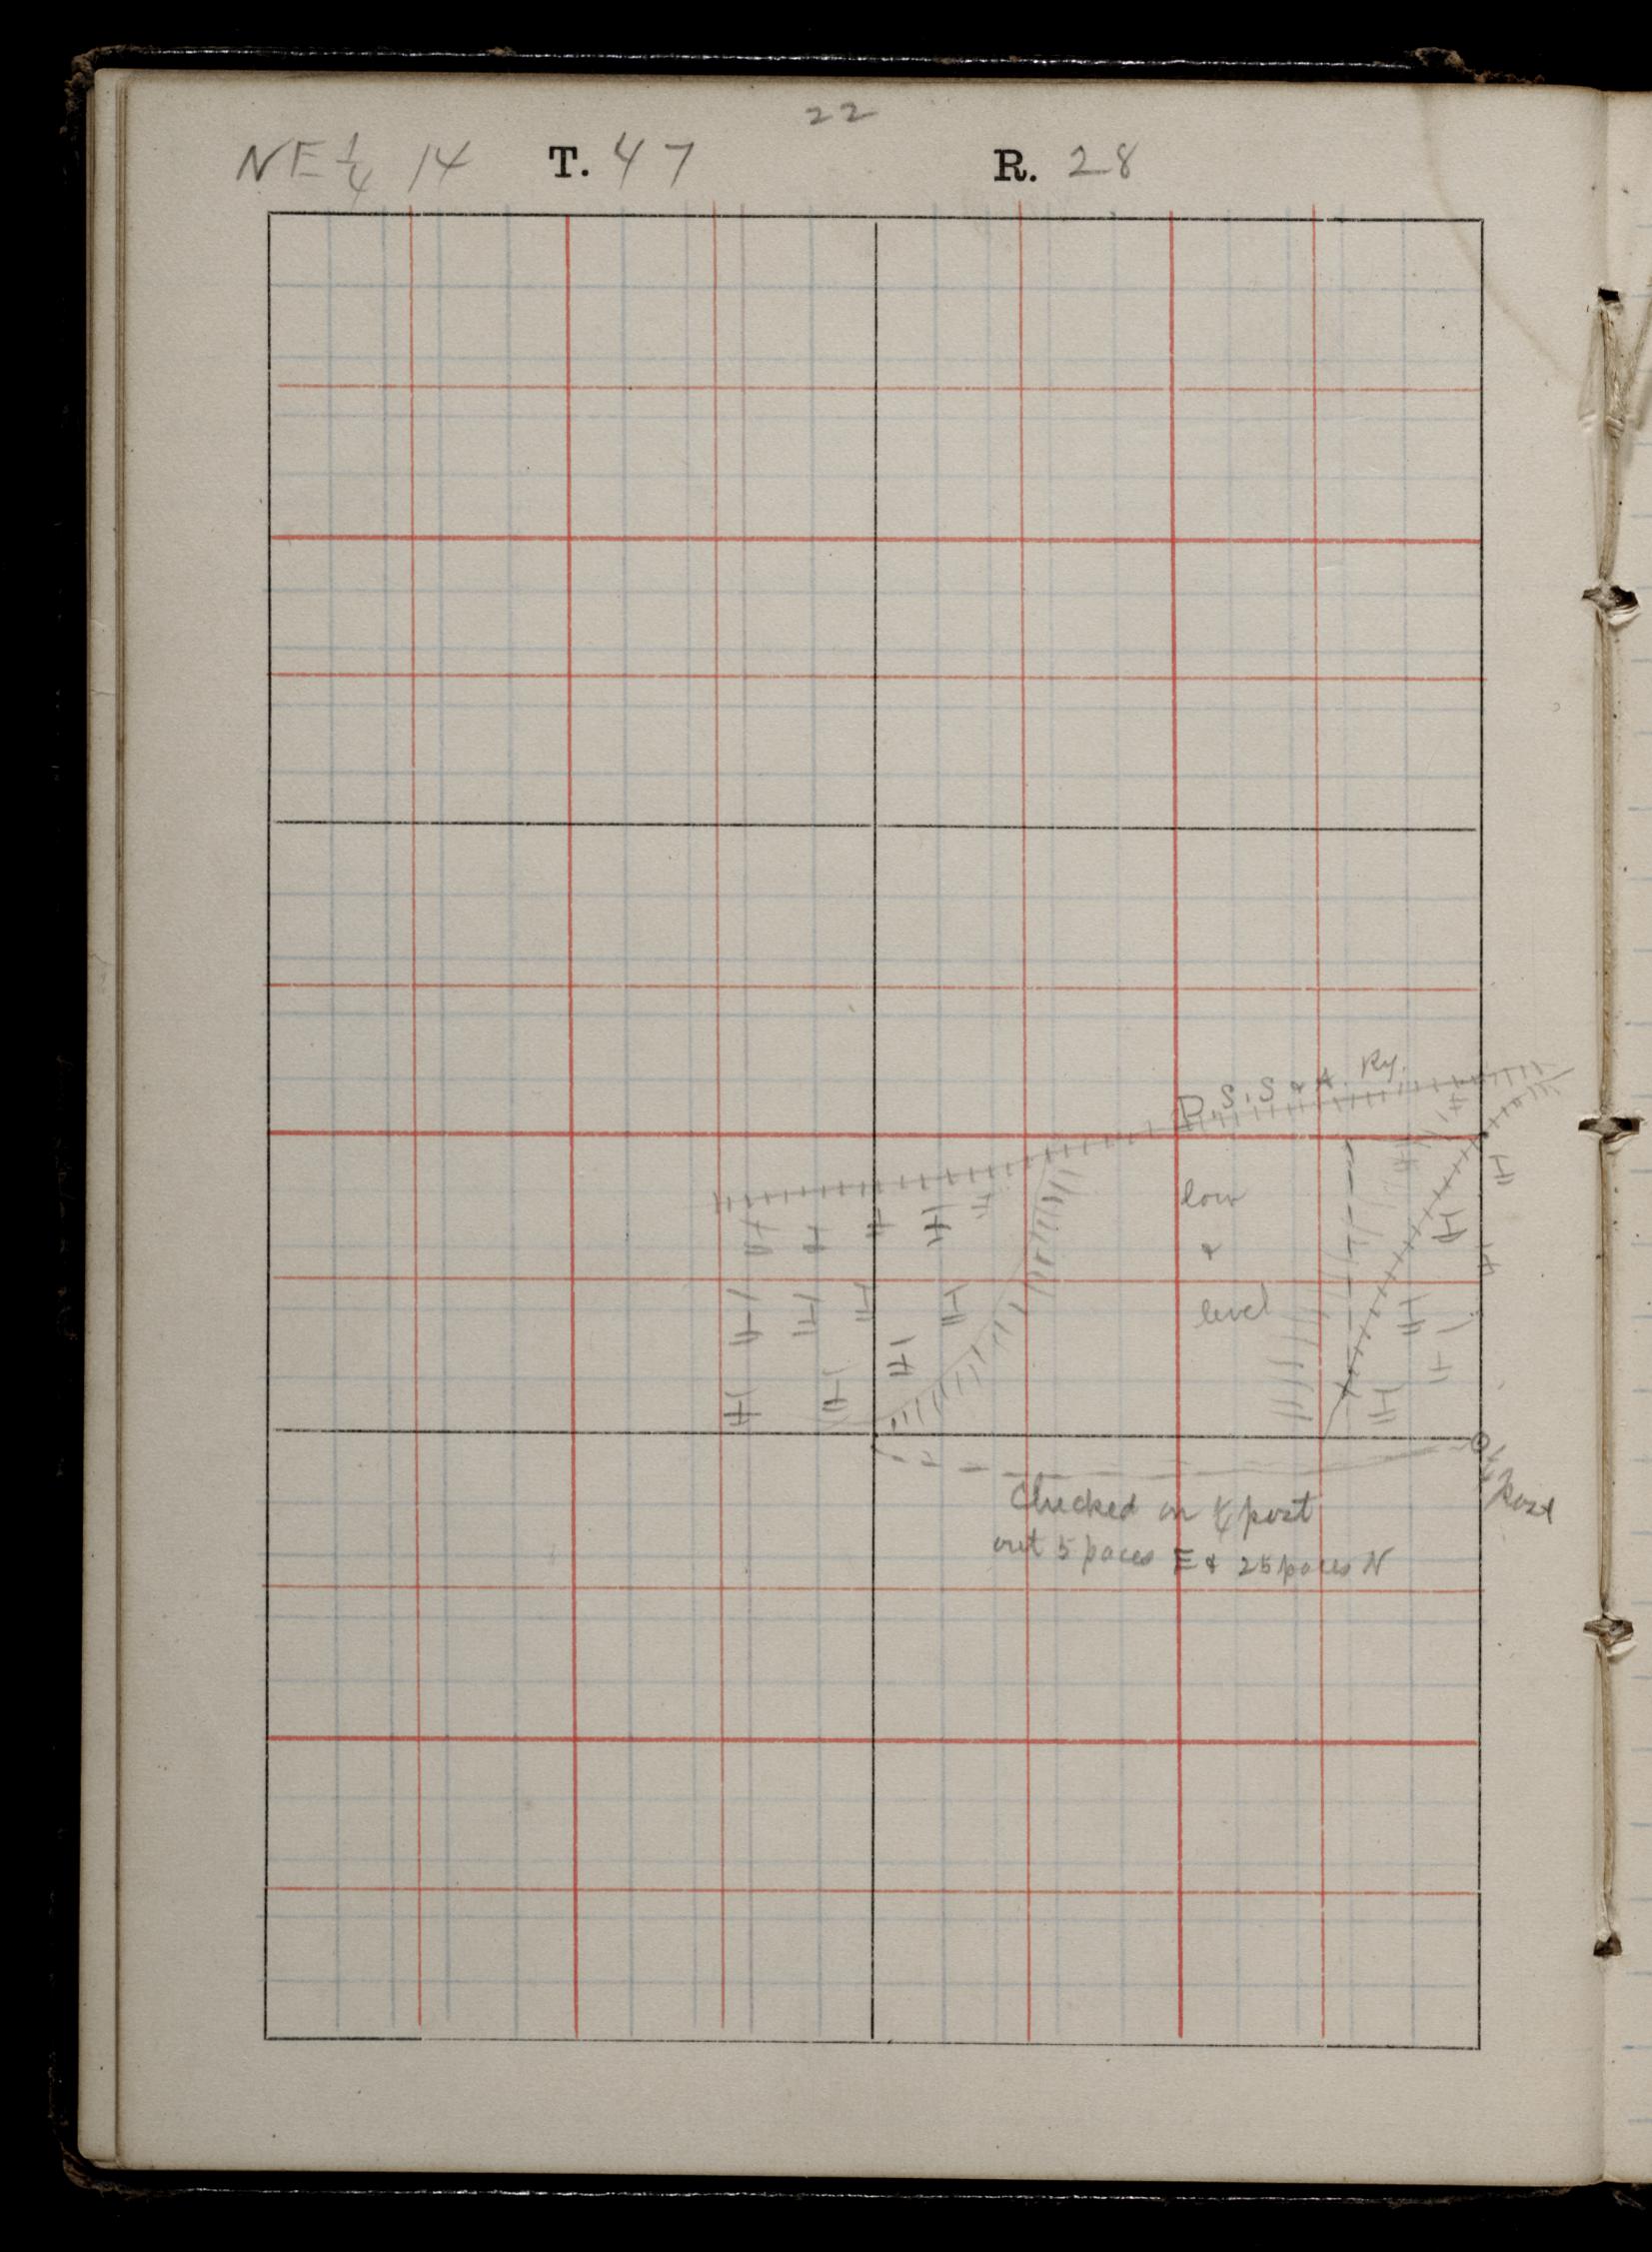 22
NE 1/4 14 T. 47 R. 28
D.S.S & A. Ry.
low
&
level
Post
Checked on 1/4 post
out 5 paces E & 25 paces N